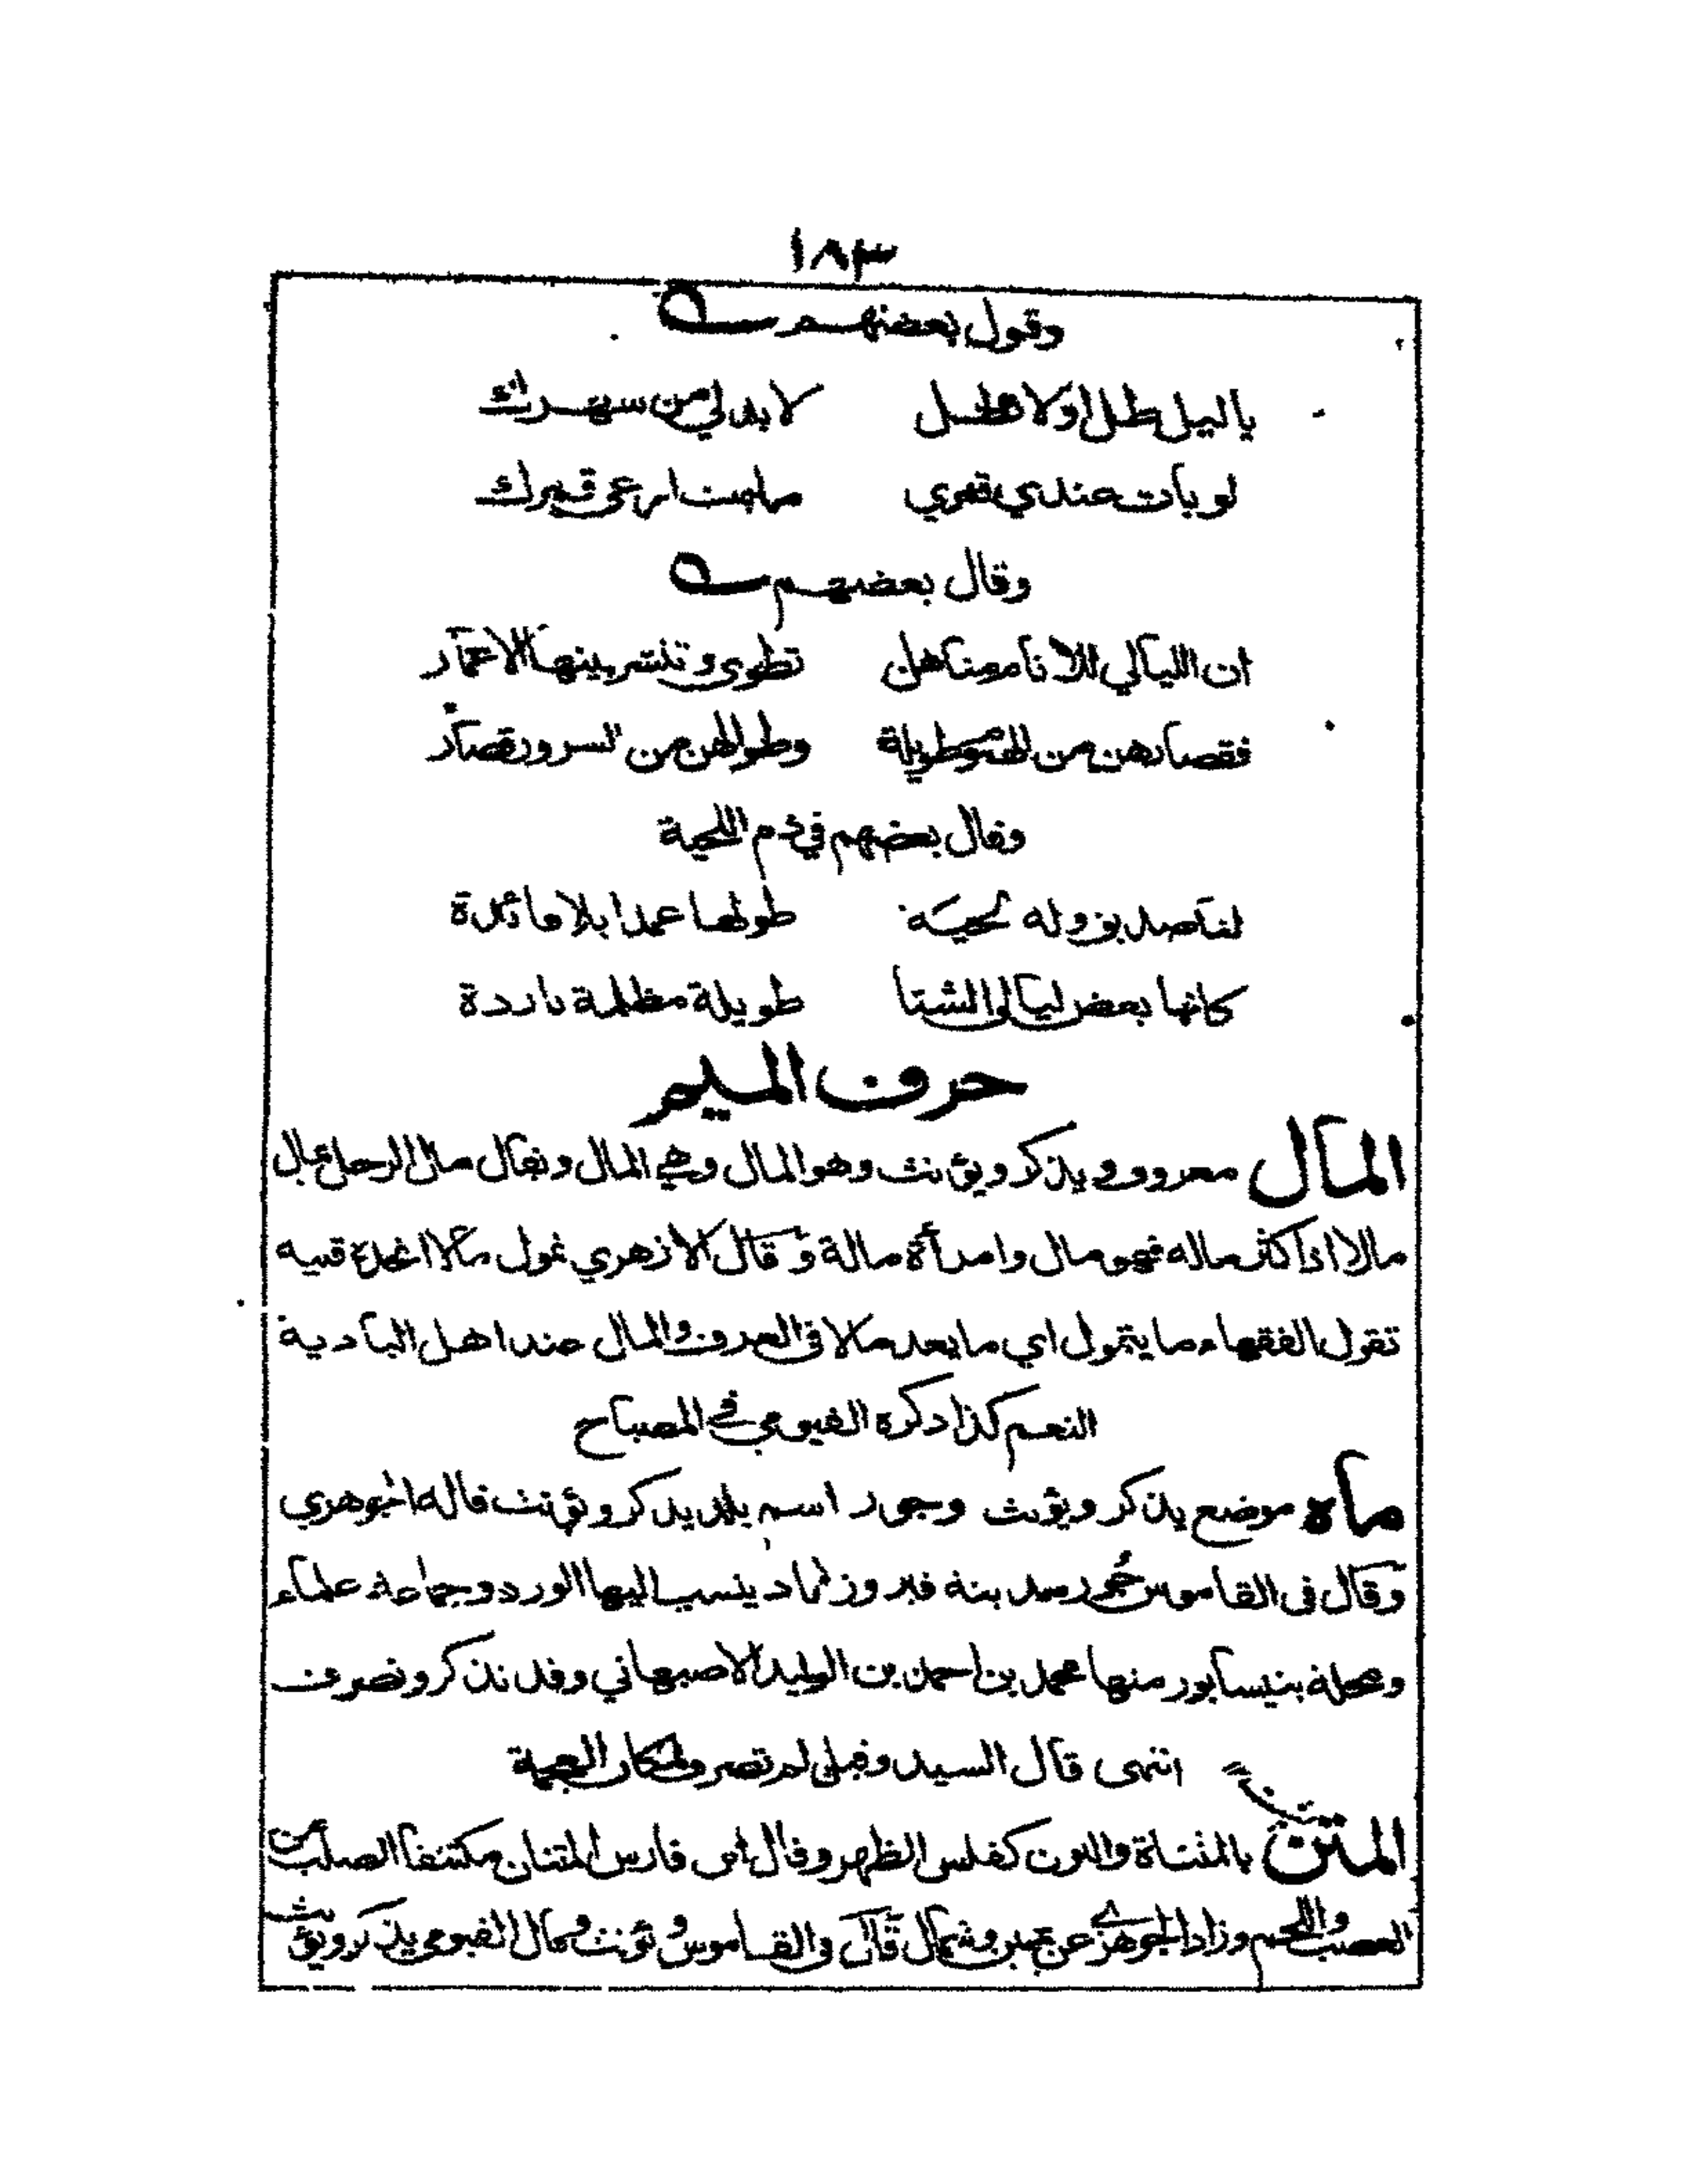 ١٨٣
وقول بعضهم
ياليل طل اولا تطل لابد لي من سهرك
لو بات عندي قمري ما بت ارعى قمرك
وقال بعضهم
ان الليالي للانام مناهل تطوى وتنشر بينها الاعمار
فقصارهن من الهموم طويلة وطوالهن من السرور قصار
وقال بعضهم في ذم اللحية
لنا صديق وله لحية طولها عمدا بلا فائدة
كانها بعض ليالي الشتا طويلة مظلمة باردة
حرف الميم
المال معروف ويذكر ويؤنث وهو المال وهي المال ويقال مال الرجل يمال
مالا اذا كثر ماله فهو مال وامرأة مالة وقال الازهري تمول مالا اتخذه قنية
تقول الفقهاء ما يتمول اي ما يعد مالا في العرف والمال عند اهل البادية
النعم كذا ذكره الفيومي في المصباح
ماه موضع يذكر ويؤنث وجور اسم بلد يذكر ويؤنث قاله الجوهري
وقال في القاموس جُور بنة فيروز ينسب اليها الورد وجماعة علماء
ومحلة بنيسابور منها محمد بن احمد بن الوليد الاصبهاني وقد تذكر وتصرف
انتهى قال السيد وقيل لم تصرف لمكان العجمة
المتن بالمثناة والنون كفلس الظهر وقال ابن فارس المتنان مكتنفا الصلب من
العصب واللحم وزاد الجوهري عن يمين وشمال قال في القاموس ويؤنث وقال الفيومي يذكر ويؤنث